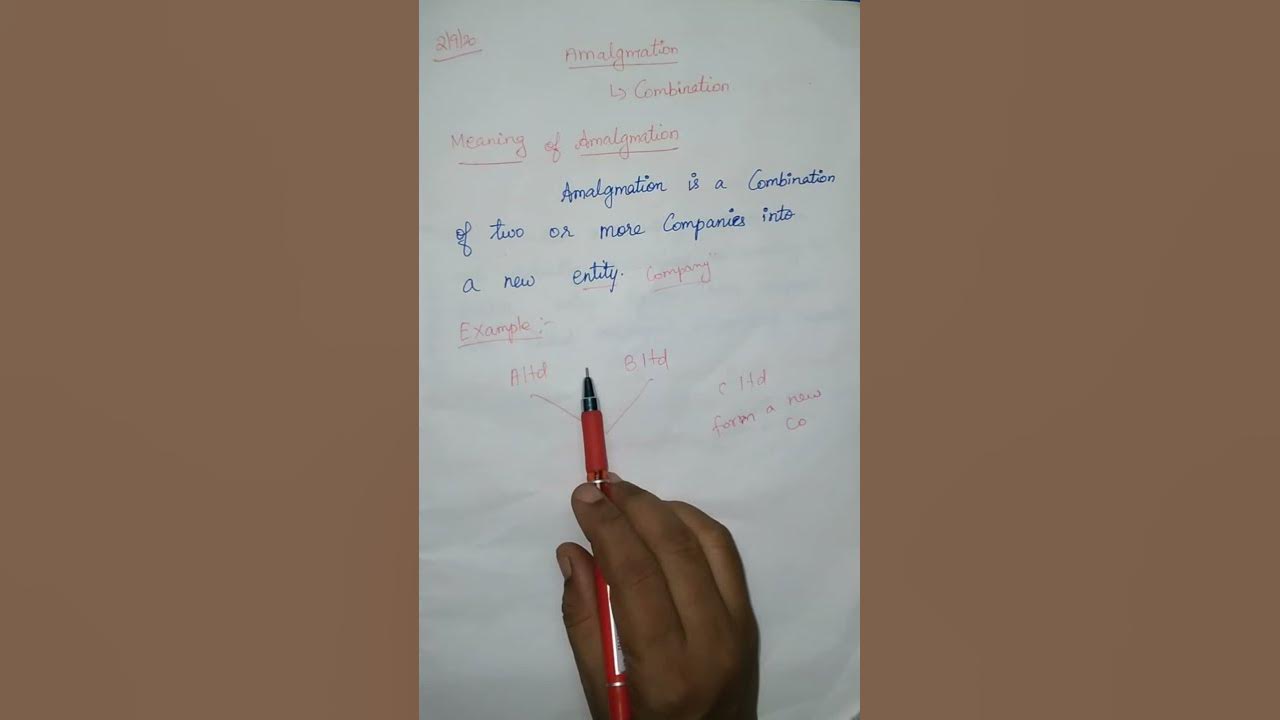 2/9/20
Amalgmation
↳ Combination
Meaning of Amalgmation
Amalgmation is a Combination
of two or more Companies into
a new entity. Company"
Example :-
A ltd B ltd
C ltd
form a new
Co